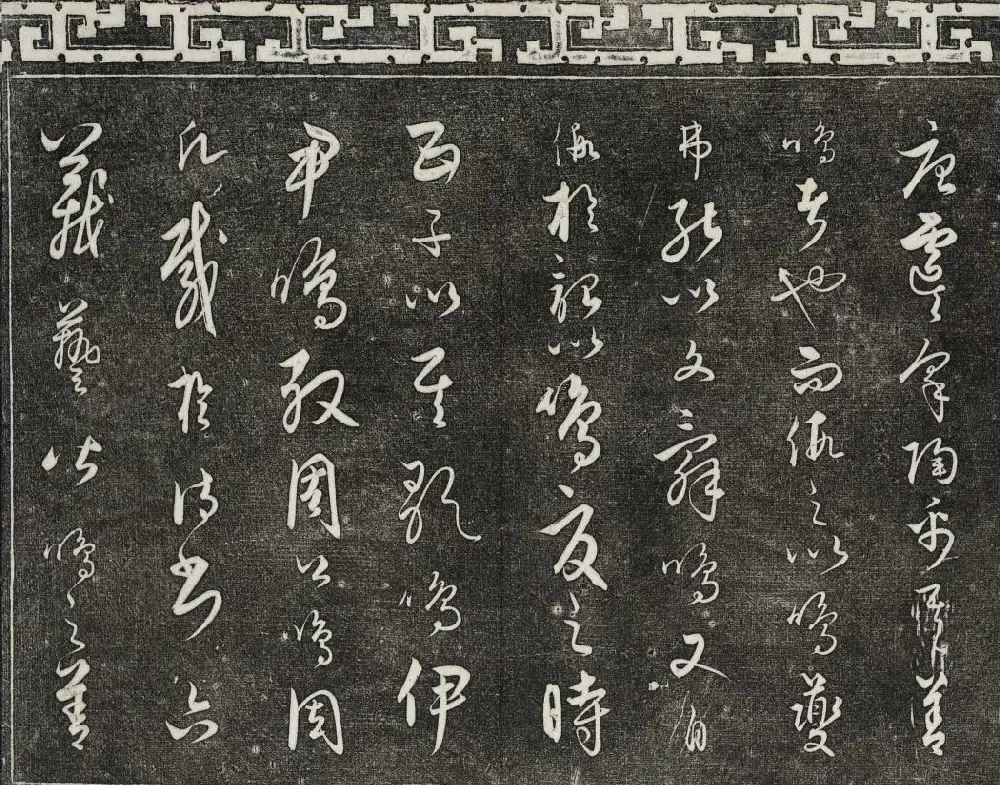 唐虞皋陶禹其善
鳴者也而假之以鳴夔
弗能以文辭鳴又自
假於韶以鳴夏之時
五子以其歌鳴伊
尹鳴殷周公鳴周
凡載於詩書六
義藝皆鳴之善